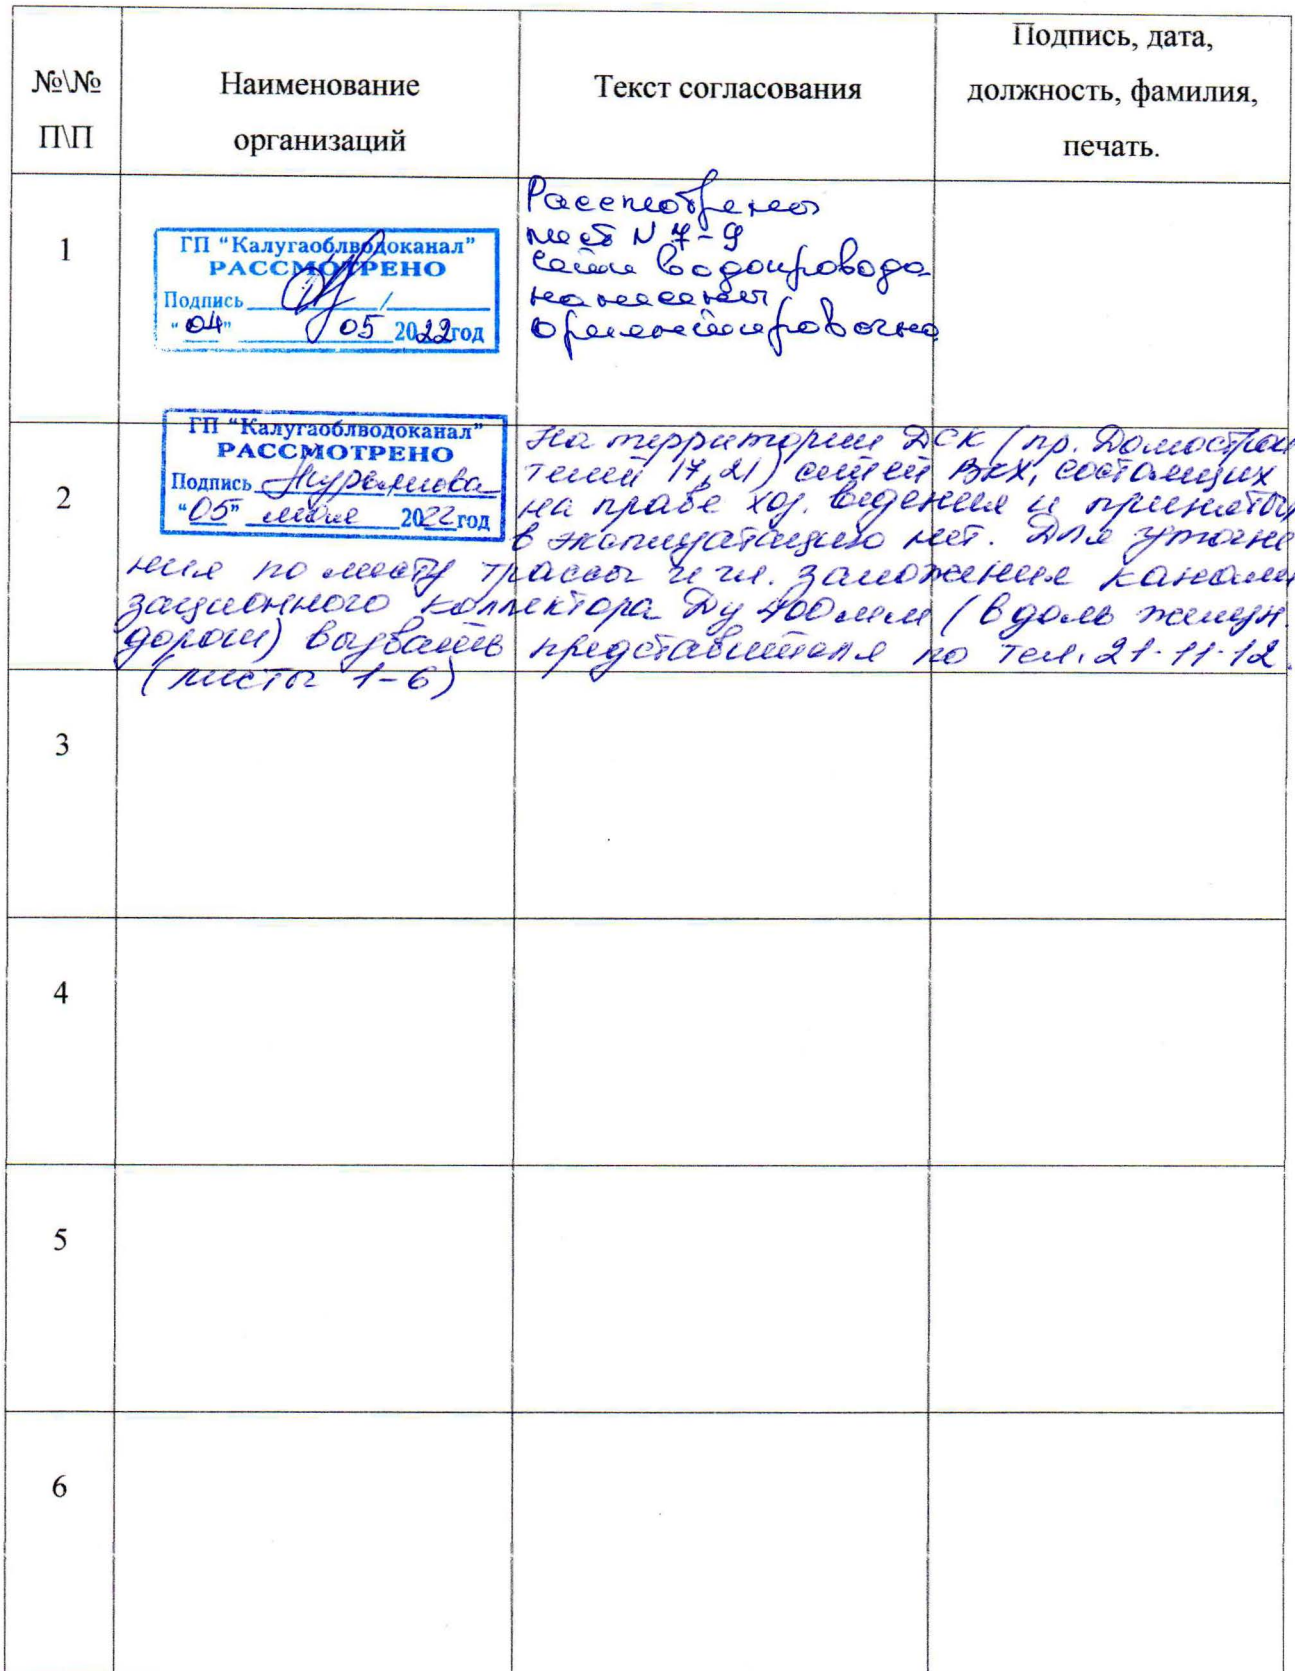 №\№
П\П
Наименование
организаций
Текст согласования
Подпись, дата,
должность, фамилия,
печать.
1
ГП "Калугаоблводоканал"
РАССМОТРЕНО
Подпись /
"04" 05 2022 год
Рассмотрены
лист N 7-9
сети водопровода
нанесены
ориентировочно
2
ГП "Калугаоблводоканал"
РАССМОТРЕНО
Подпись
"05" мая 2022 год
На территории ДСК (пр. Домострои
телей 17, 21) сетей ВКХ, состоящих
на праве хоз. ведения и принятых
в эксплуатацию нет. Для уточне
ния по месту трассы и гл. заложения канали
зационного коллектора Ду 400 мм (вдоль
дороги) вызвать представителя по тел. 21-11-12.
(листы 1-6)
3
4
5
6